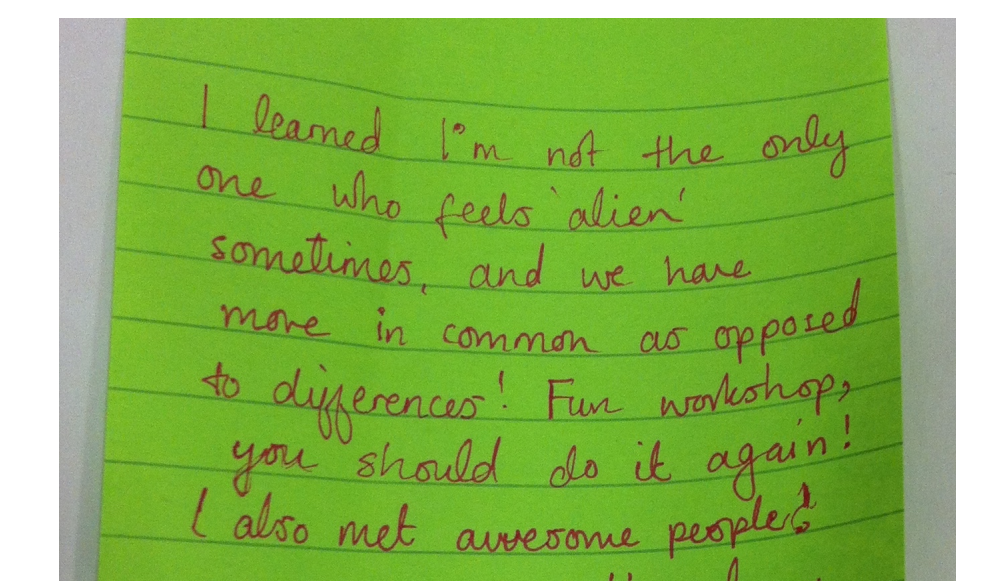 I learned I'm not the only
one who feels 'alien'
sometimes, and we have
more in common as opposed
to differences! Fun workshop,
you should do it again!
I also met awesome people!